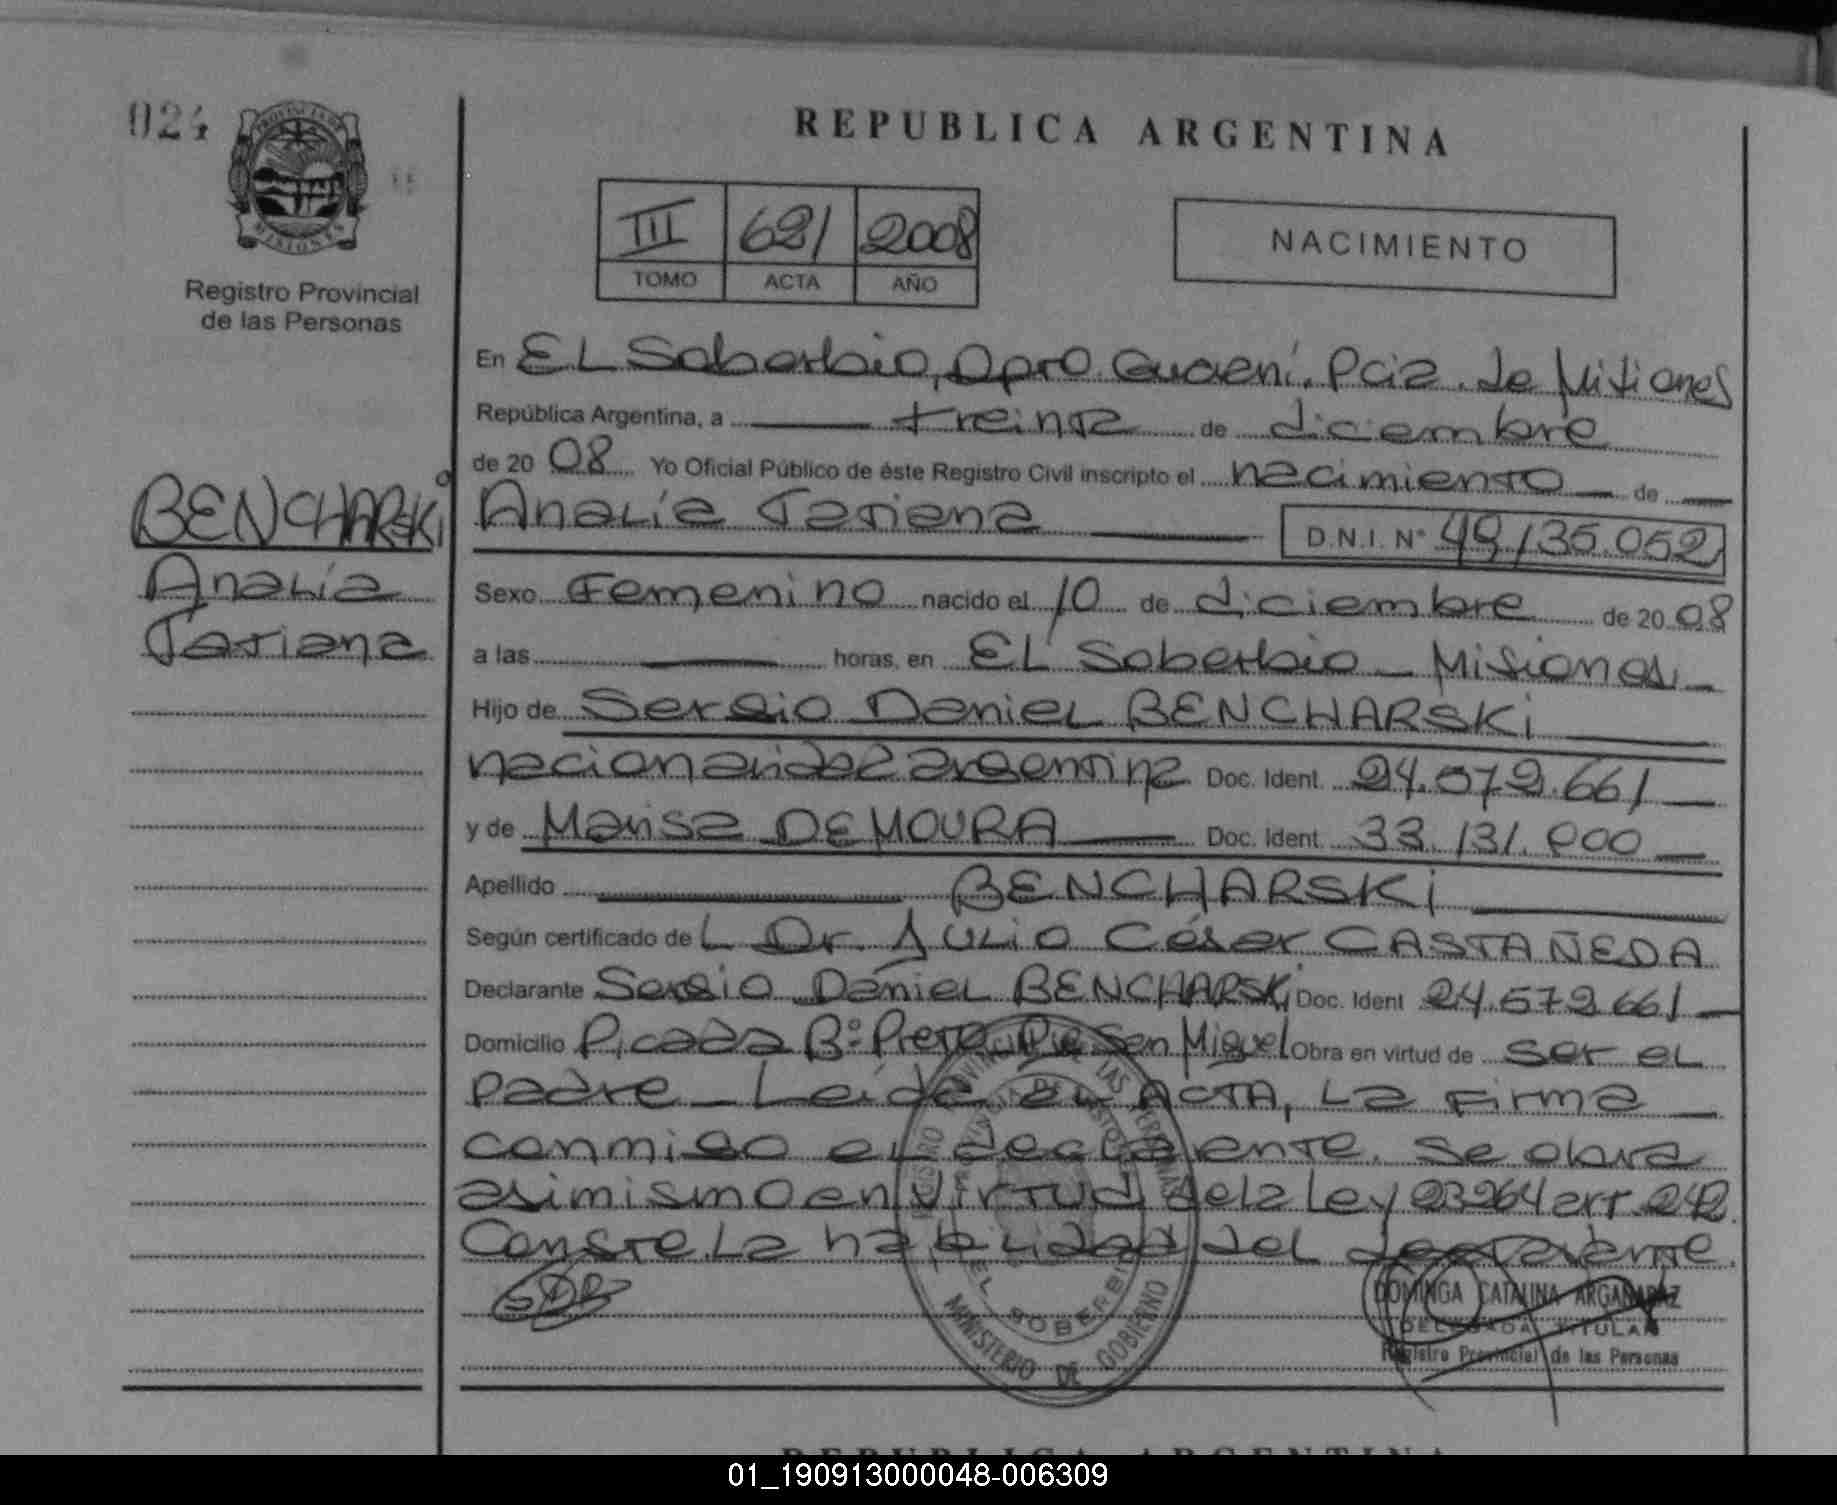 024
PROVINCIA DE
MISIONES
Registro Provincial
de las Personas
REPUBLICA ARGENTINA
III 621 2008
TOMO ACTA AÑO
NACIMIENTO
En EL Soberbio, Dpto. Guaraní. Pcia. de Misiones
República Argentina, a treinta de diciembre
de 20 08 Yo Oficial Público de éste Registro Civil inscripto el nacimiento de
BENCHARSKI
Analía
Tatiana
Analía Tatiana D.N.I. N° 49.135.052
Sexo Femenino nacido el 10 de diciembre de 20 08
a las horas, en EL Soberbio - Misiones
Hijo de Sergio Daniel BENCHARSKI
nacionalidad argentina Doc. Ident. 24.572.661
y de Marisa DE MOURA Doc. Ident. 33.131.800
Apellido BENCHARSKI
Según certificado de L Dr. Julio César CASTAÑEDA
Declarante Sergio Daniel BENCHARSKI Doc. Ident 24.572.661
Domicilio Picada B° Preto San Miguel Obra en virtud de ser el
padre - Leída el ACTA, La Firma
conmigo el declarante. Se obra
asimismo en virtud de la Ley 23264 art. 242
Conste La habilidad del declarante.
SDB
EL SOBERBIO
MINISTERIO DE GOBIERNO
DOMINGA CATALINA ARGAÑARAZ
DELEGADA TITULAR
Registro Provincial de las Personas
REPUBLICA ARGENTINA
01_190913000048-006309